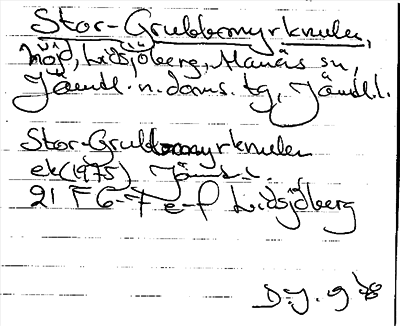 Stor-Grubbmyrknulen,
höjd, Lidsjöberg, Alanäs sn,
Jämtl. n. doms. tg, Jämtl.l.
Stor-Grubbmyrknulen
ek(1975) Jämtl.l.
21 F 6-7 e-f Lidsjöberg
D.J. 9